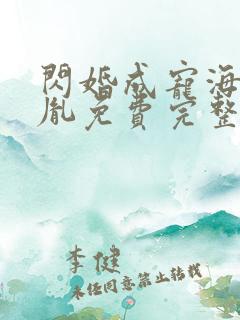 閃婚成寵海
胤免費完整
李健
未經同意禁止轉載